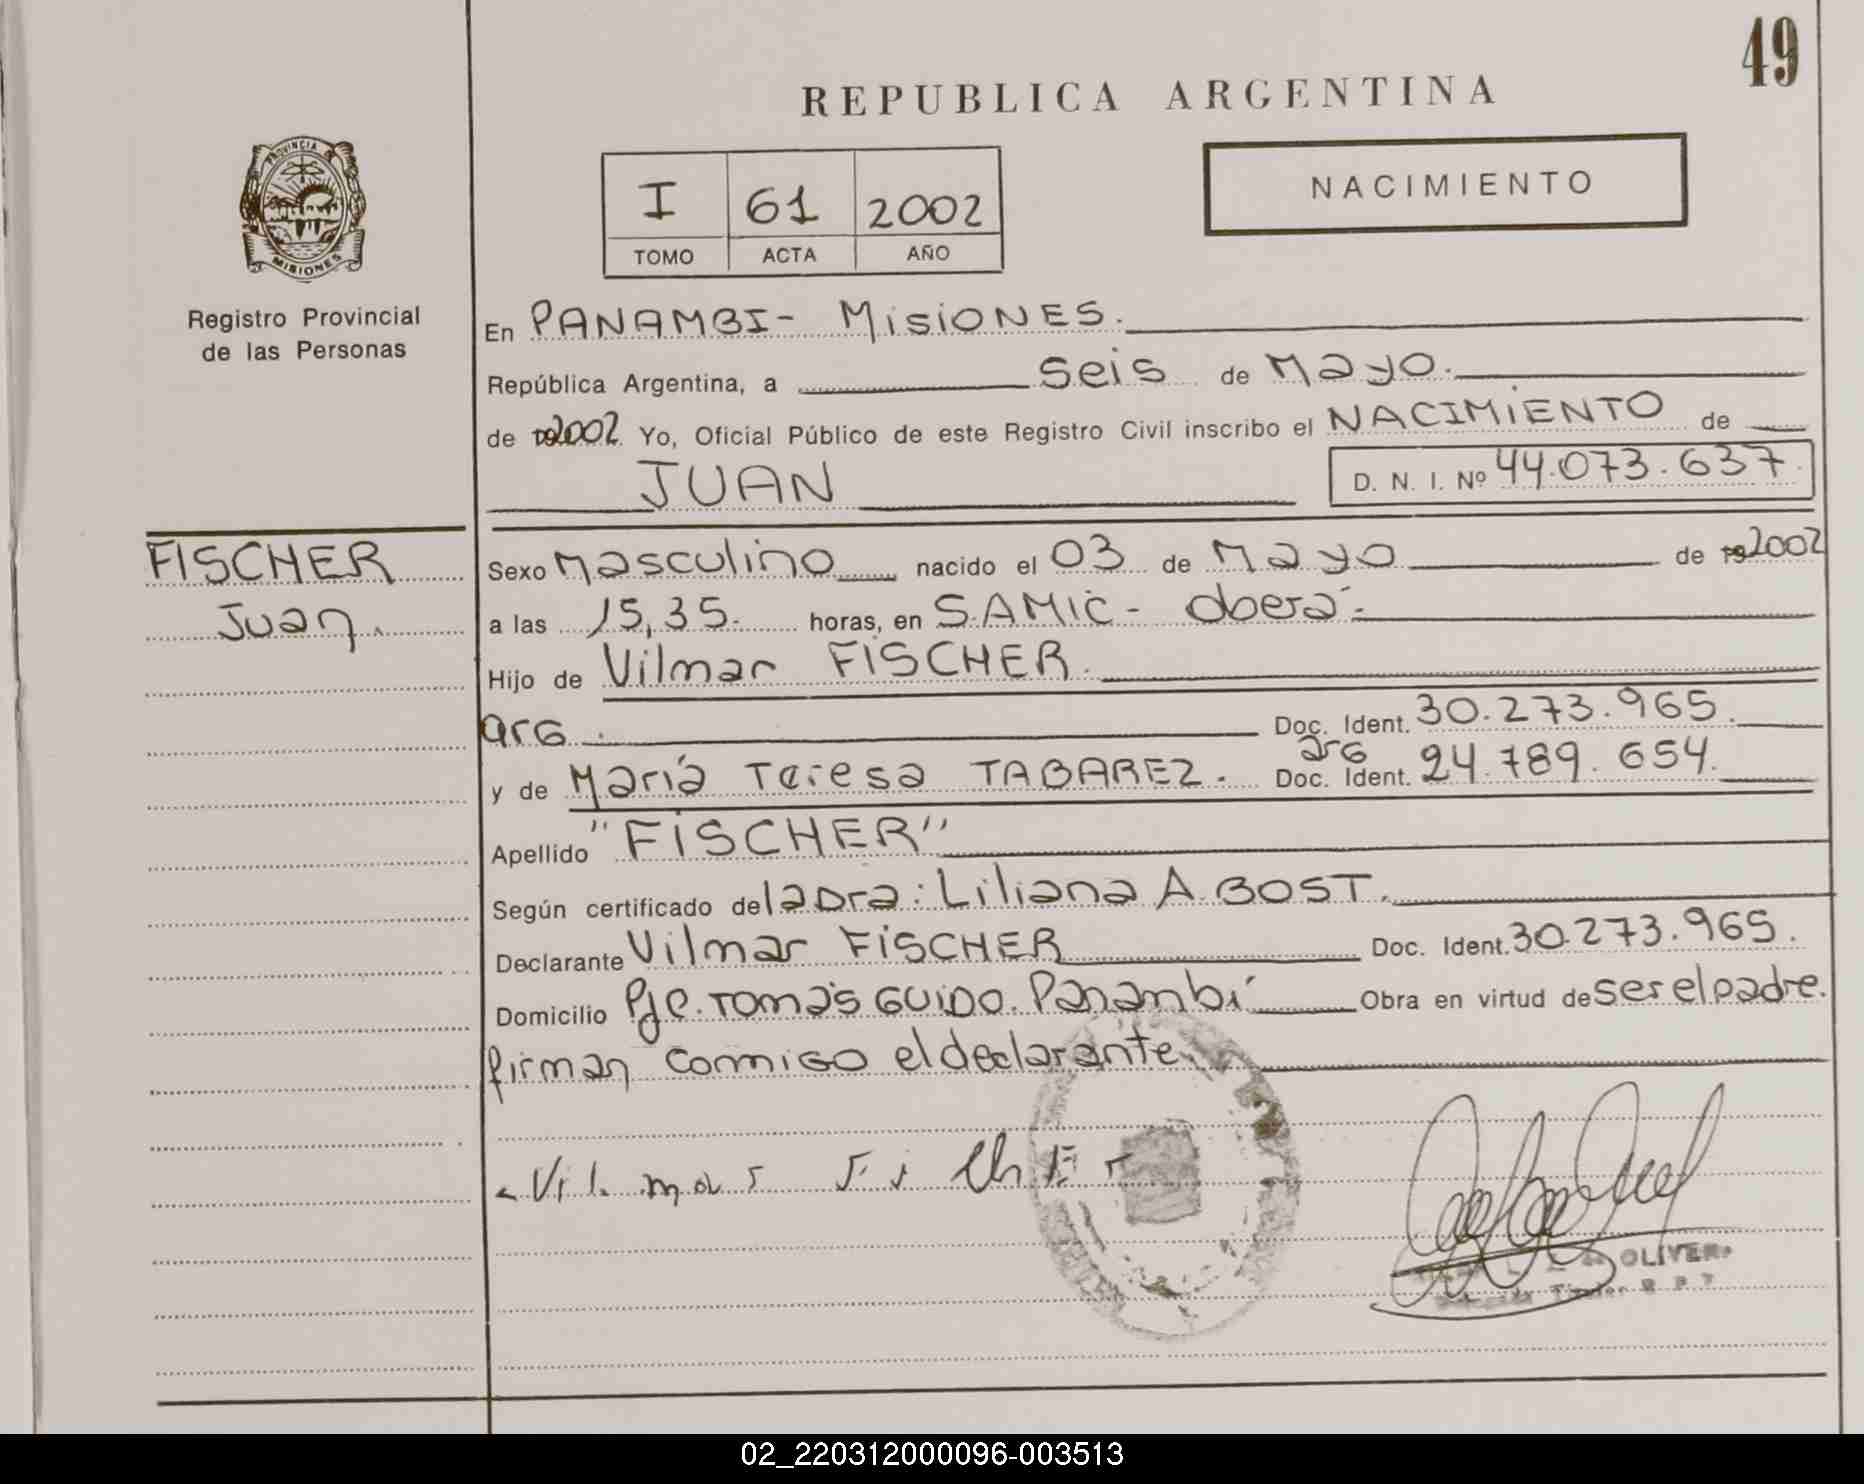 49
REPUBLICA ARGENTINA
PROVINCIA DE
MISIONES
Registro Provincial
de las Personas
I 61 2002
TOMO ACTA AÑO
NACIMIENTO
En PANAMBI - MisiONES.
República Argentina, a seis de Mayo.
de 192002 Yo, Oficial Público de este Registro Civil inscribo el NACIMIENTO de
JUAN D. N. I. Nº 44.073.637.
FISCHER
Juan.
Sexo Masculino nacido el 03 de Mayo de 192002
a las 15,35. horas, en S.AMIC - Oberá.-
Hijo de Vilmar FISCHER.
arg. Doc. Ident. 30.273.965.
y de María Teresa TABAREZ. arg Doc. Ident. 24.789.654.
Apellido "FISCHER"
Según certificado de la Dra: Liliana A. BOST.
Declarante Vilmar FISCHER Doc. Ident. 30.273.965.
Domicilio Pje. Tomás GUIDO. Panambí Obra en virtud de ser el padre.
firman conmigo el declarante.
Vilmar
OLIVER
Titular R P
02_220312000096-003513